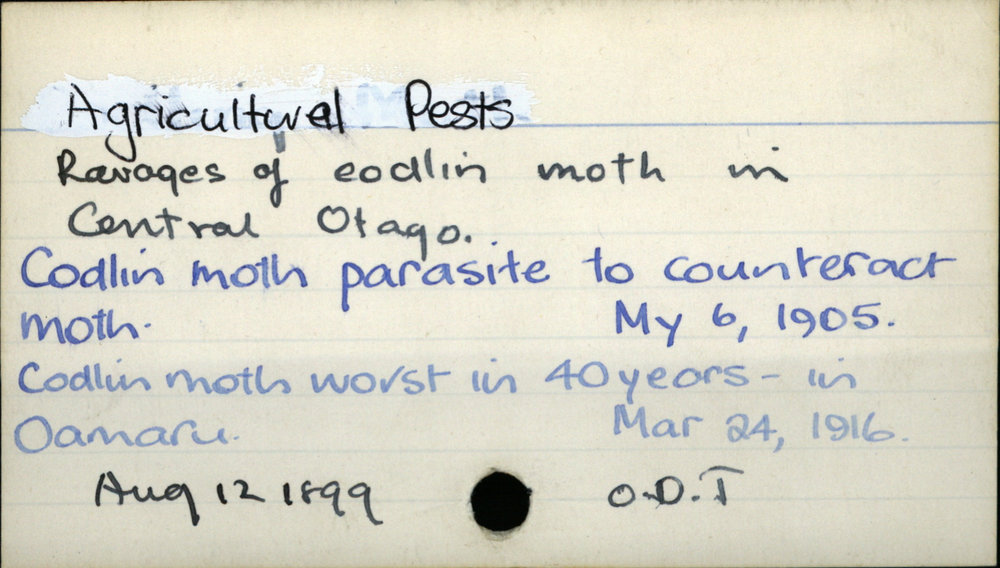 Agricultural Pests
Ravages of codlin moth in
Central Otago.
Codlin moth parasite to counteract
moth. My 6, 1905.
Codlin moth worst in 40 years - in
Oamaru. Mar 24, 1916.
Aug 12 1899 O.D.T